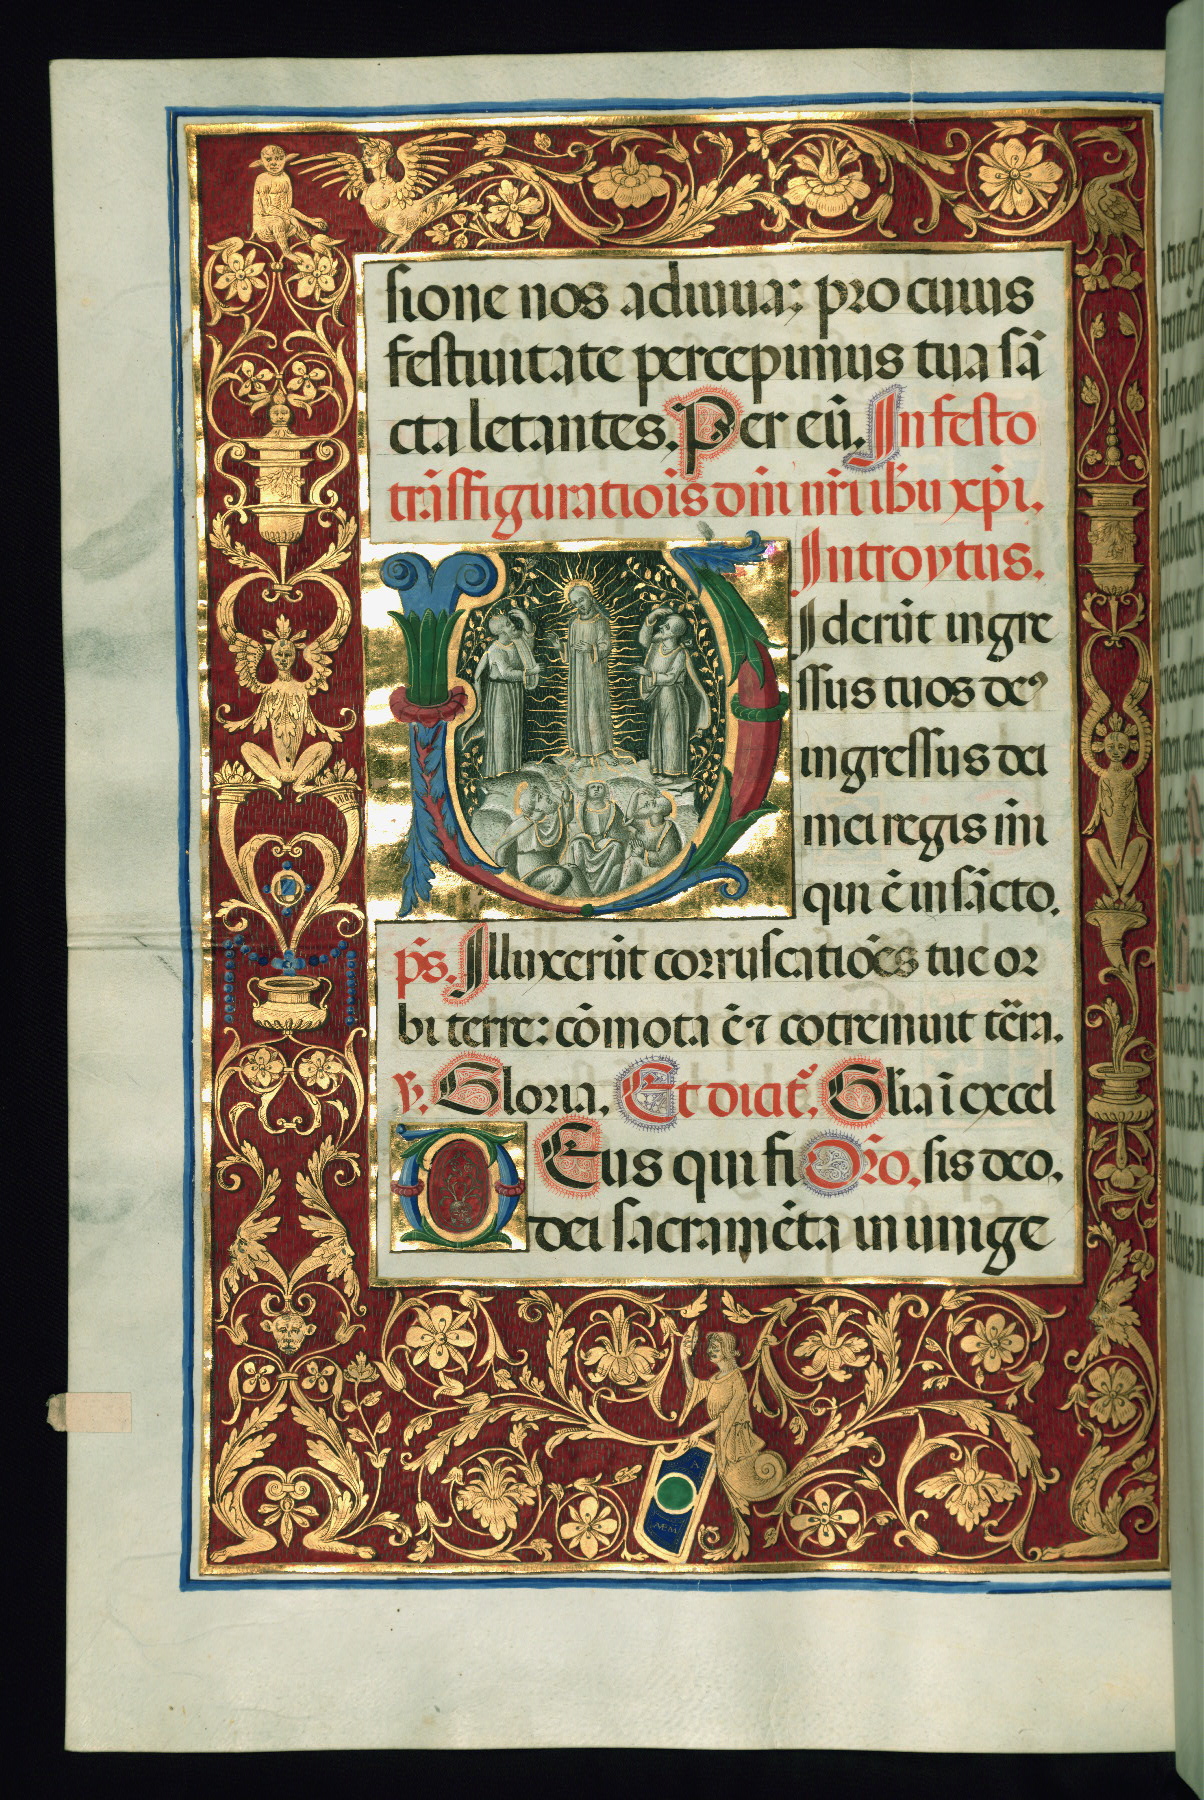 sione nos adiuua; pro cuius
festiuitate percepimus tua sā
cta letantes. Per eū. In festo
trāsfiguratiōis dñi nr̄i ih̄u xp̄i.
Introytus.
Uiderūt ingre
ssus tuos deꝰ
ingressus dei
mei regis mī
qui ē in sācto.
p̄s. Illuxerūt corruscatiōes tue or
bi terre: cōmota ē ⁊ cotremuit tēra.
℣. Gloria. Et dicat̄. Glīa ī excel
DEus qui fi Or̄o. sis deo.
dei sacramēta in unige
A